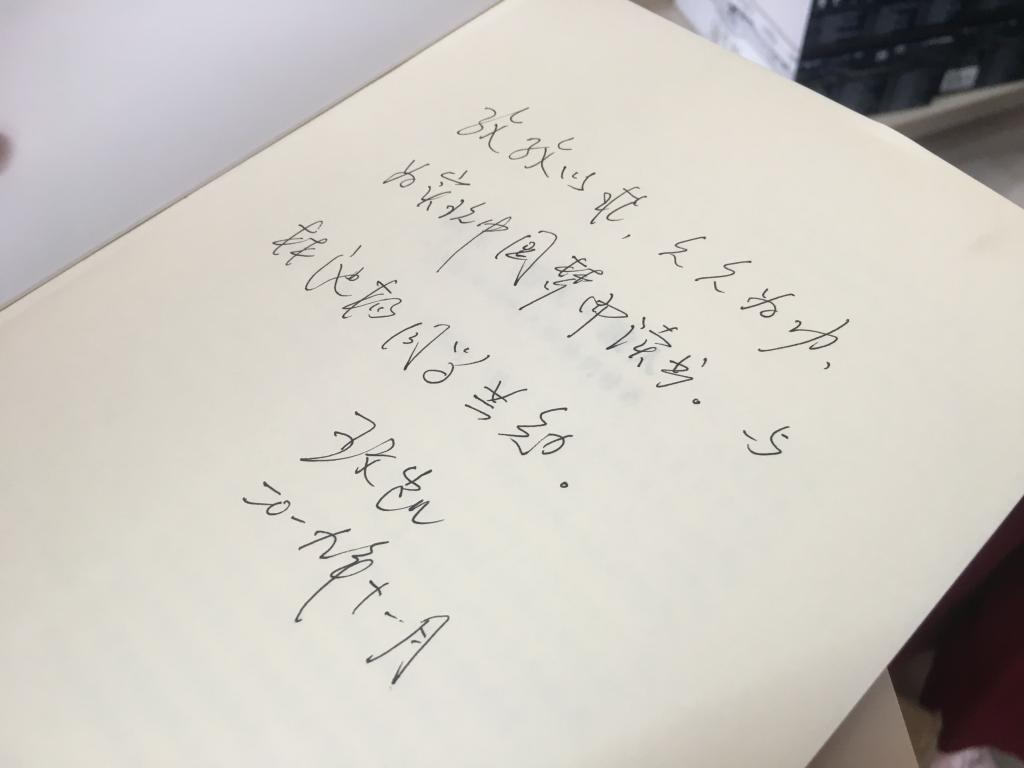 孜孜以求,久久为功,
为实现中国梦而读书。与
同学共勉。
二0一六年十一月